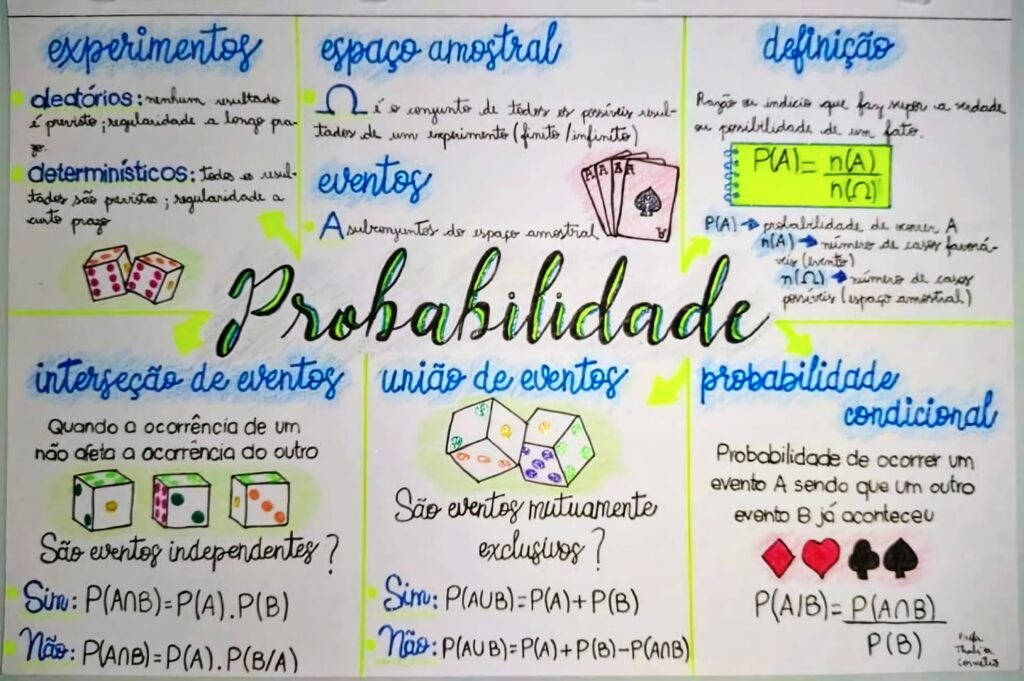 experimentos
aleatórios: nenhum resultado
é previsto; regularidade a longo pra-
zo.
determinísticos: todos os resul-
tados são previstos; regularidade a
curto prazo
espaço amostral
Ω é o conjunto de todos os possíveis resul-
tados de um experimento (finito/infinito)
eventos
A subconjuntos do espaço amostral
A A A A
A
definição
Razão ou indício que faz supor a verdade
ou possibilidade de um fato.
P(A) = n(A)
n(Ω)
P(A) → probabilidade de ocorrer A
n(A) → número de casos favorá-
veis (evento)
n(Ω) → número de casos
possíveis (espaço amostral)
Probabilidade
interseção de eventos
Quando a ocorrência de um
não afeta a ocorrência do outro
São eventos independentes?
Sim: P(A∩B)=P(A).P(B)
Não: P(A∩B)=P(A).P(B/A)
união de eventos
São eventos mutuamente
exclusivos?
Sim: P(A∪B)=P(A)+P(B)
Não: P(A∪B)=P(A)+P(B)-P(A∩B)
probabilidade
condicional
Probabilidade de ocorrer um
evento A sendo que um outro
evento B já aconteceu
P(A/B)= P(A∩B)
P(B)
Profa